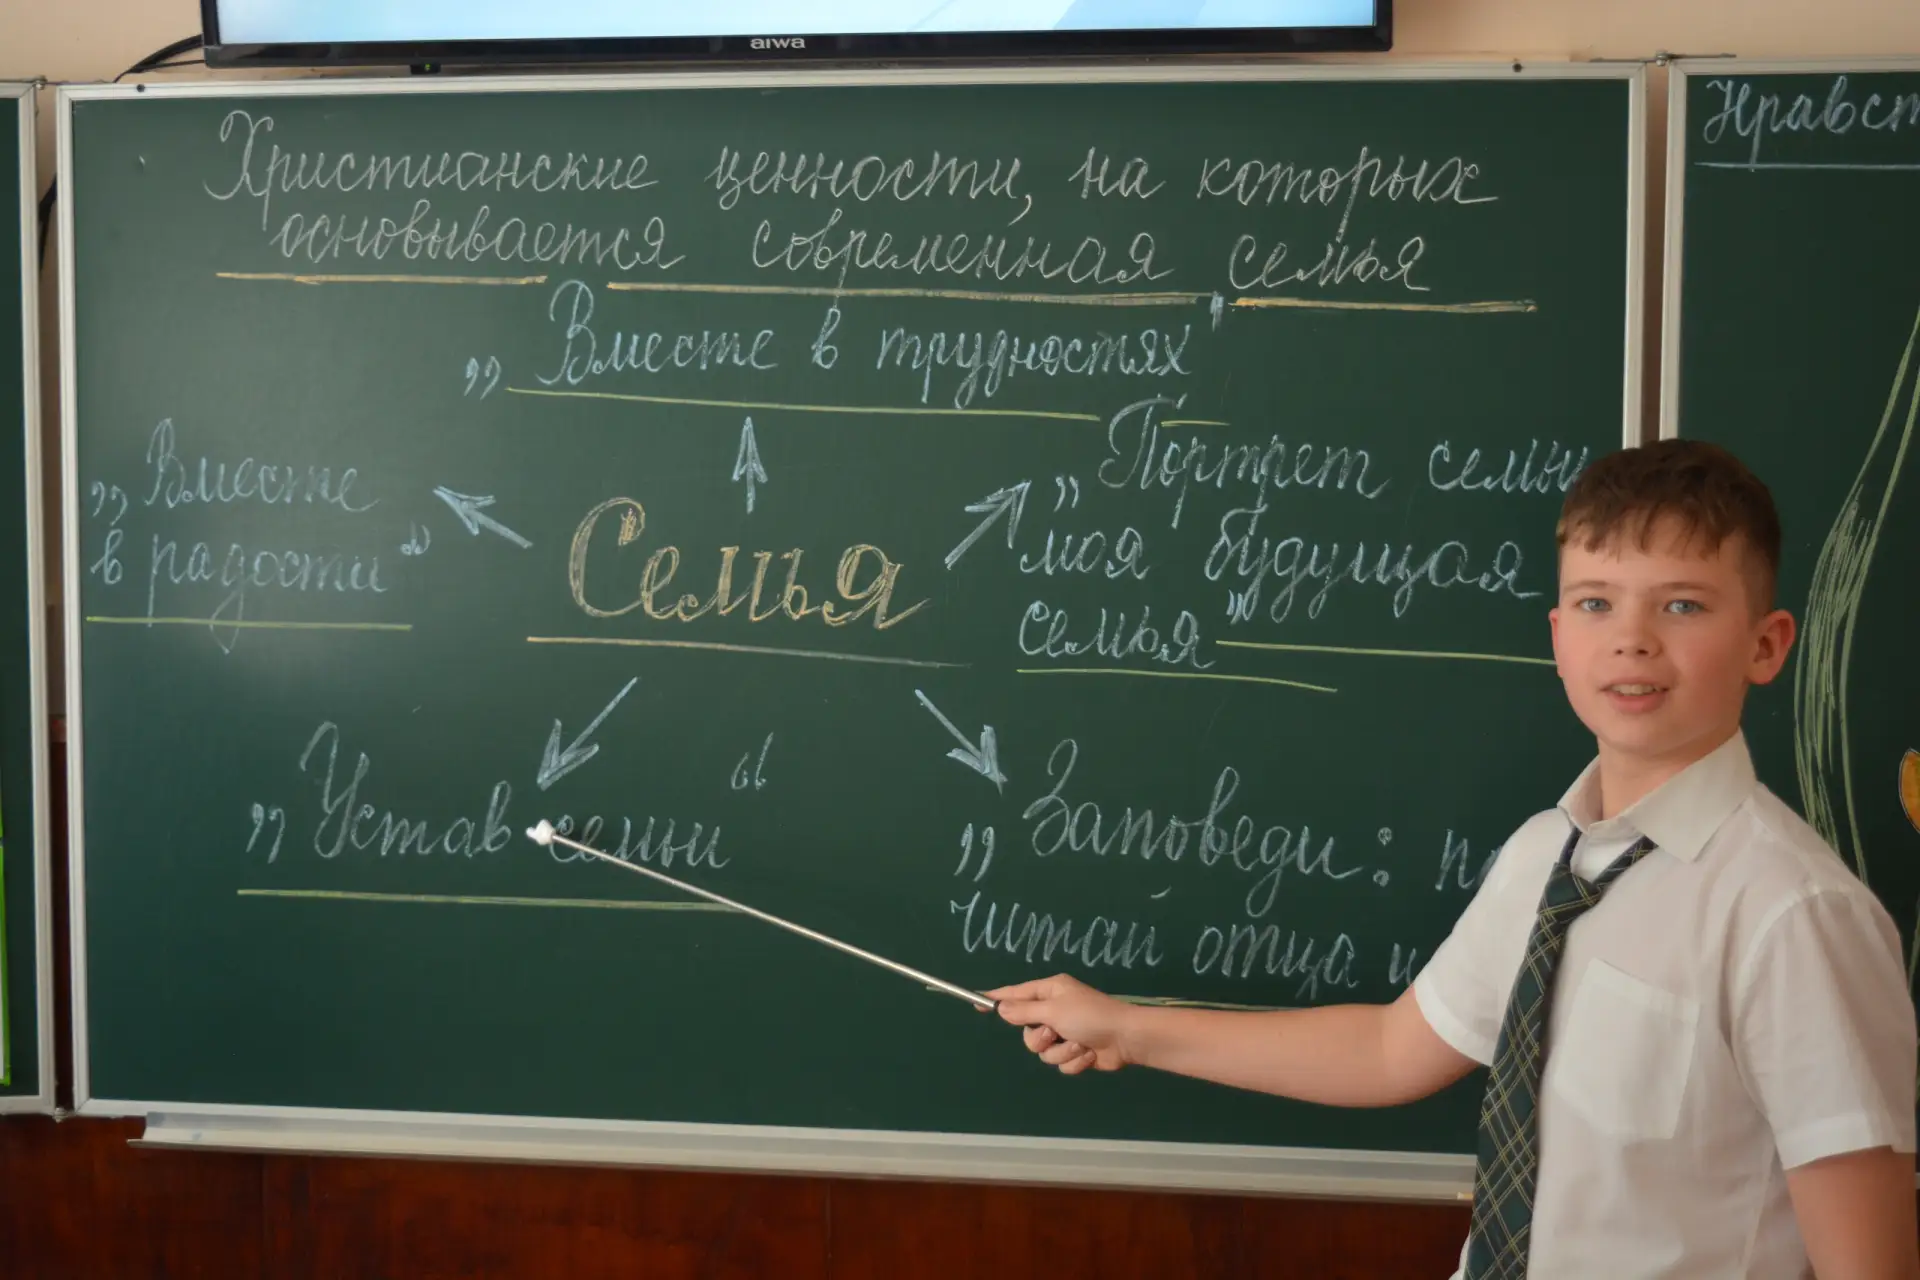 aiwa
Христианские ценности, на которых
основывается современная семья
„Вместе в трудностях"
„Вместе
в радости"
Семья
„Портрет семьи
моя будущая
семья"
„Устав семьи"
„Заповеди:
читай отца и
Нравст